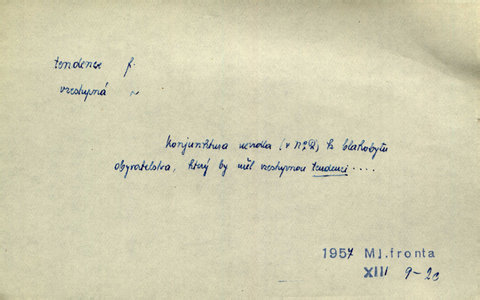 tendence f.
vzestupná ~
Konjunktura nevedla (v NSR) k blahobytu
obyvatelstva, který by měl vzestupnou tendenci ....
1957 Ml.fronta
XIII 9-20